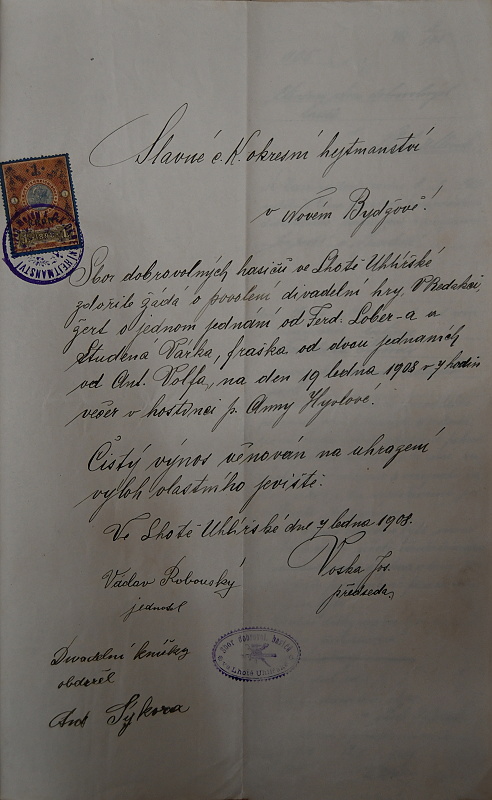 Slavné c. K. okresní hejtmanství
v Novém Bydžově!
Sbor dobrovolných hasičů ve Lhotě Uhlířské
zdvořile žádá o povolení divadelní hry, V Redakci,
žert o jednom jednání od Ferd. Lober-a a
Studená Várka, fraška od dvou jednáních
od Ant. Volfa, na den 19 ledna 1908 v 7 hodin
večer v hostinci p. Anny Hyvlové.
Čistý výnos věnován na uhrazení
výloh vlastního jeviště.
Ve Lhotě Uhlířské dne 7 ledna 1908.
Voska Jos.
předseda,
Václav Robouský
jednatel
Divadelní knížky
obdržel
Ant Sýkora